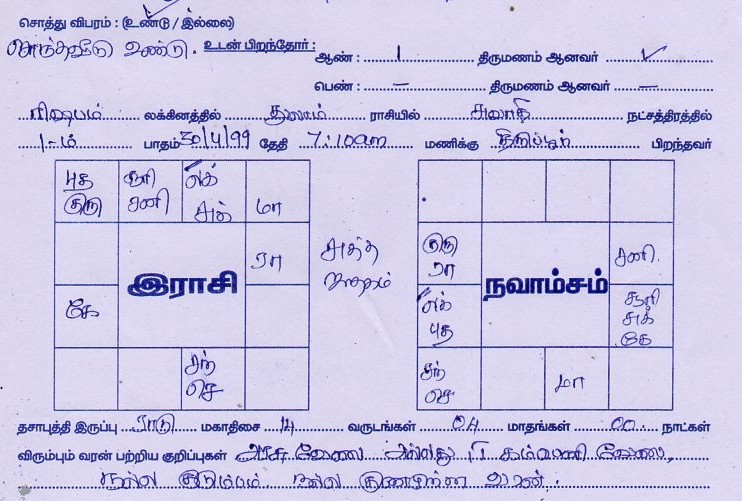 சொத்து விபரம் : (உண்டு / இல்லை)
சொந்தவீடு உண்டு. உடன் பிறந்தோர் : ஆண் : 1 திருமணம் ஆனவர் ✓
பெண் : – திருமணம் ஆனவர் –
ரிஷபம் லக்கினத்தில் துலாம் ராசியில் சுவாதி நட்சத்திரத்தில்
1-ம் பாதம் 30/4/99 தேதி 7:10am மணிக்கு திருப்பூர் பிறந்தவர்
புத குரு
சூரி சனி
லக் சுக்
மா
ரா
இராசி
கே
சந் செ
சுத்த ஜாதகம்
குரு ரா
சனி
நவாம்சம்
லக் புத
சூரி சுக் கே
சந் செ
மா
தசாபுத்தி இருப்பு ராகு மகாதிசை 14 வருடங்கள் 04 மாதங்கள் 00 நாட்கள்
விரும்பும் வரன் பற்றிய குறிப்புகள் அரசு வேலை அல்லது IT கம்பெனி வேலை,
நல்ல குடும்பம் நல்ல குணமுள்ள வரன்.